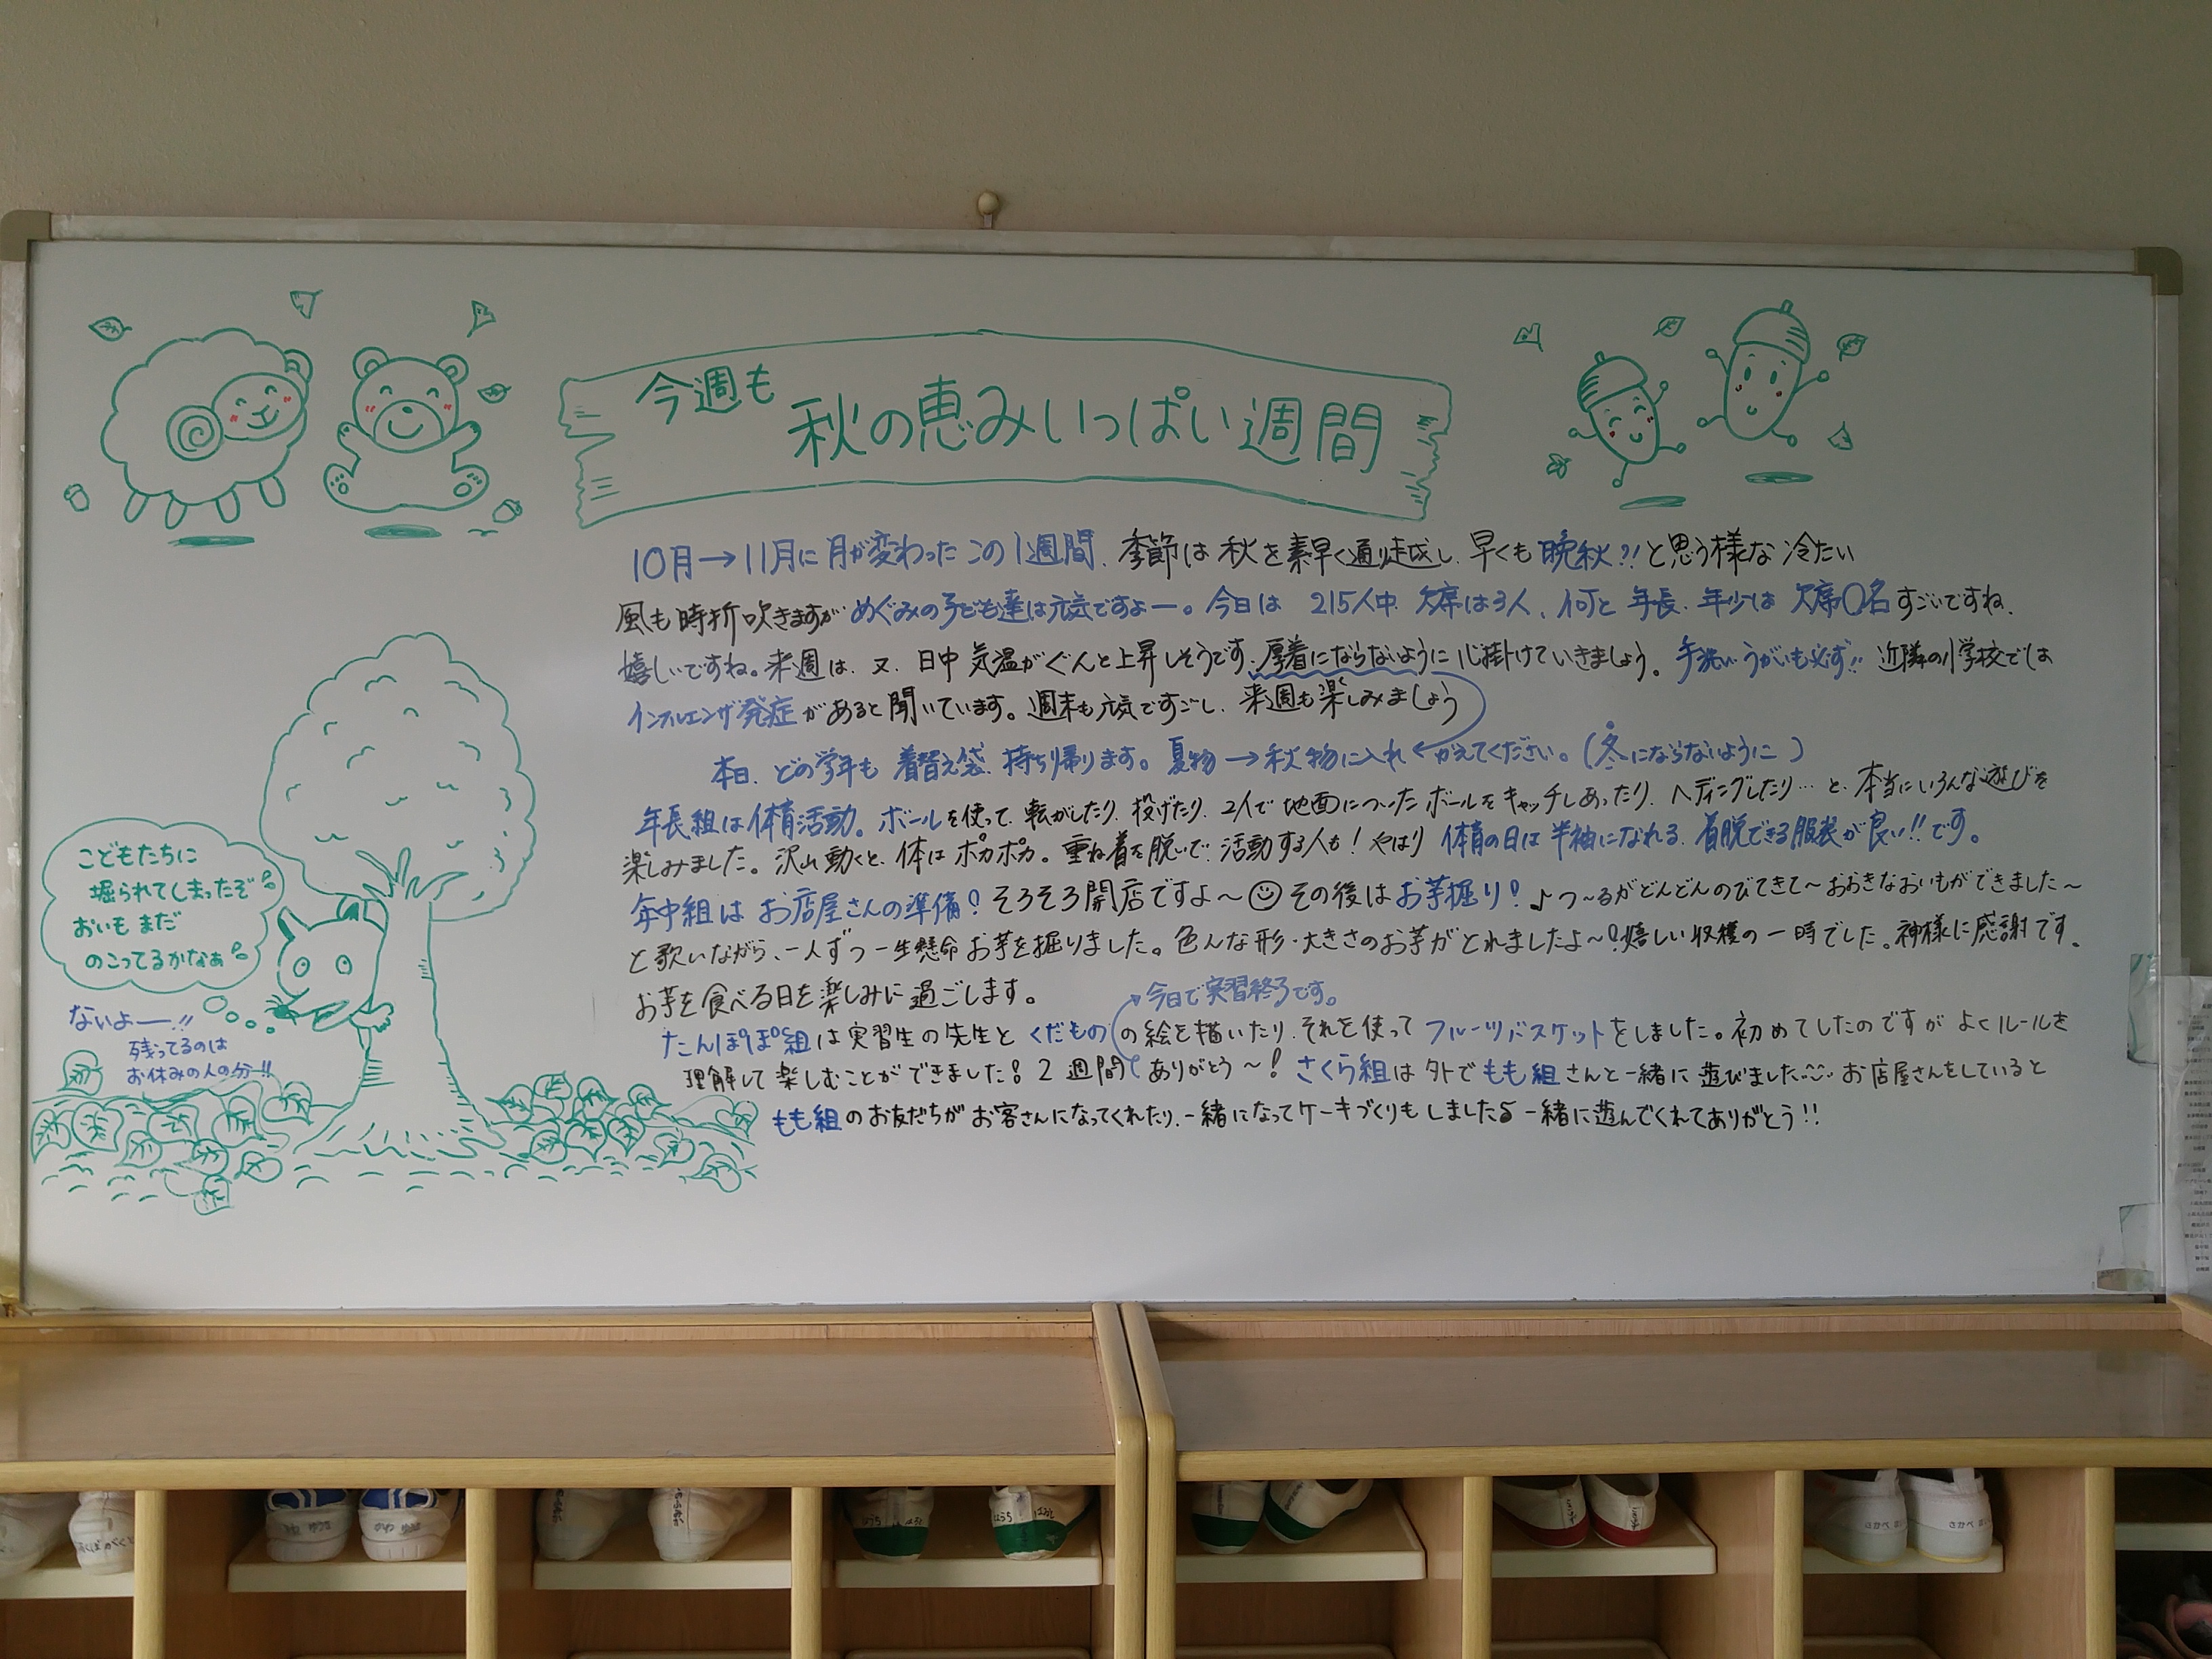 今週も
秋の恵みいっぱい週間
10月→11月に月が変わったこの1週間、季節は秋を素早く通り越し、早くも晩秋?!と思う様な冷たい
風も時折吹きますが めぐみの子ども達は元気ですよー。今日は 215人中 欠席は3人、何と 年長、年少は 欠席0名 すごいですね、
嬉しいですね。来週は、又、日中 気温がぐんと上昇しそうです。厚着にならないように 心掛けていきましょう。手洗い、うがいも必ず!! 近隣の小学校では
インフルエンザ発症があると聞いています。週末も元気ですごし、来週も楽しみましょう
本日、どの学年も 着替え袋、持ち帰ります。夏物→秋物に入れかえてください。(冬にならないように)
年長組は体育活動。ボールを使って、転がしたり、投げたり、2人で 地面についたボールをキャッチしあったり、ヘディングしたり…と、本当にいろんな遊びを
楽しみました。沢山動くと、体はポカポカ。重ね着を脱いで、活動する人も!やはり 体育の日は半袖になれる、着脱できる服装が良い!!です。
年中組は お店屋さんの準備!そろそろ開店ですよ〜 その後はお芋掘り!♪つ〜るがどんどんのびてきて〜おおきなおいもができました〜
と歌いながら、一人ずつ一生懸命お芋を掘りました。色んな形・大きさのお芋がとれましたよ〜!嬉しい収穫の一時でした。神様に感謝です。
お芋を食べる日を楽しみに過ごします。
今日で実習終了です。
たんぽぽ組は実習生の先生と くだものの絵を描いたり、それを使って フルーツバスケットをしました。初めてしたのですが よくルールを
理解して楽しむことができました!2週間 ありがとう〜! さくら組は外でもも組さんと一緒に遊びました お店屋さんをしていると
もも組のお友だちが お客さんになってくれたり、一緒になってケーキづくりもしました♪一緒に遊んでくれてありがとう!!
こどもたちに
掘られてしまったぞ
おいも まだ
のこってるかなぁ
ないよー!!
残ってるのは
お休みの人の分!!